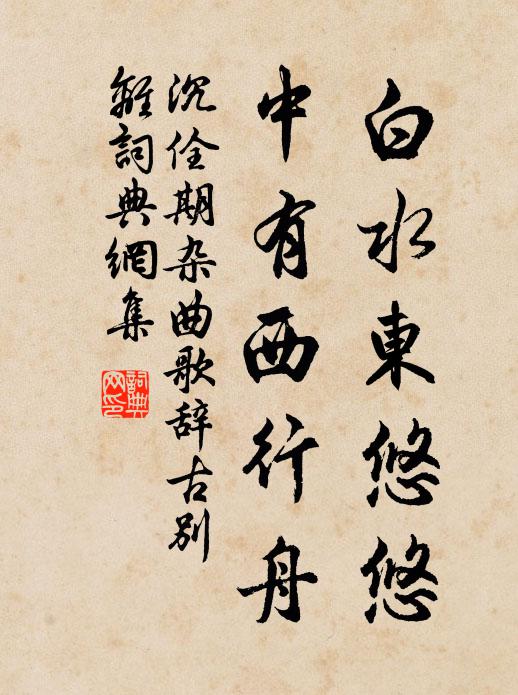 白水東悠悠
中有西行舟
沉佺期杂曲歌辞古别
離詞典網集
詞典
网印